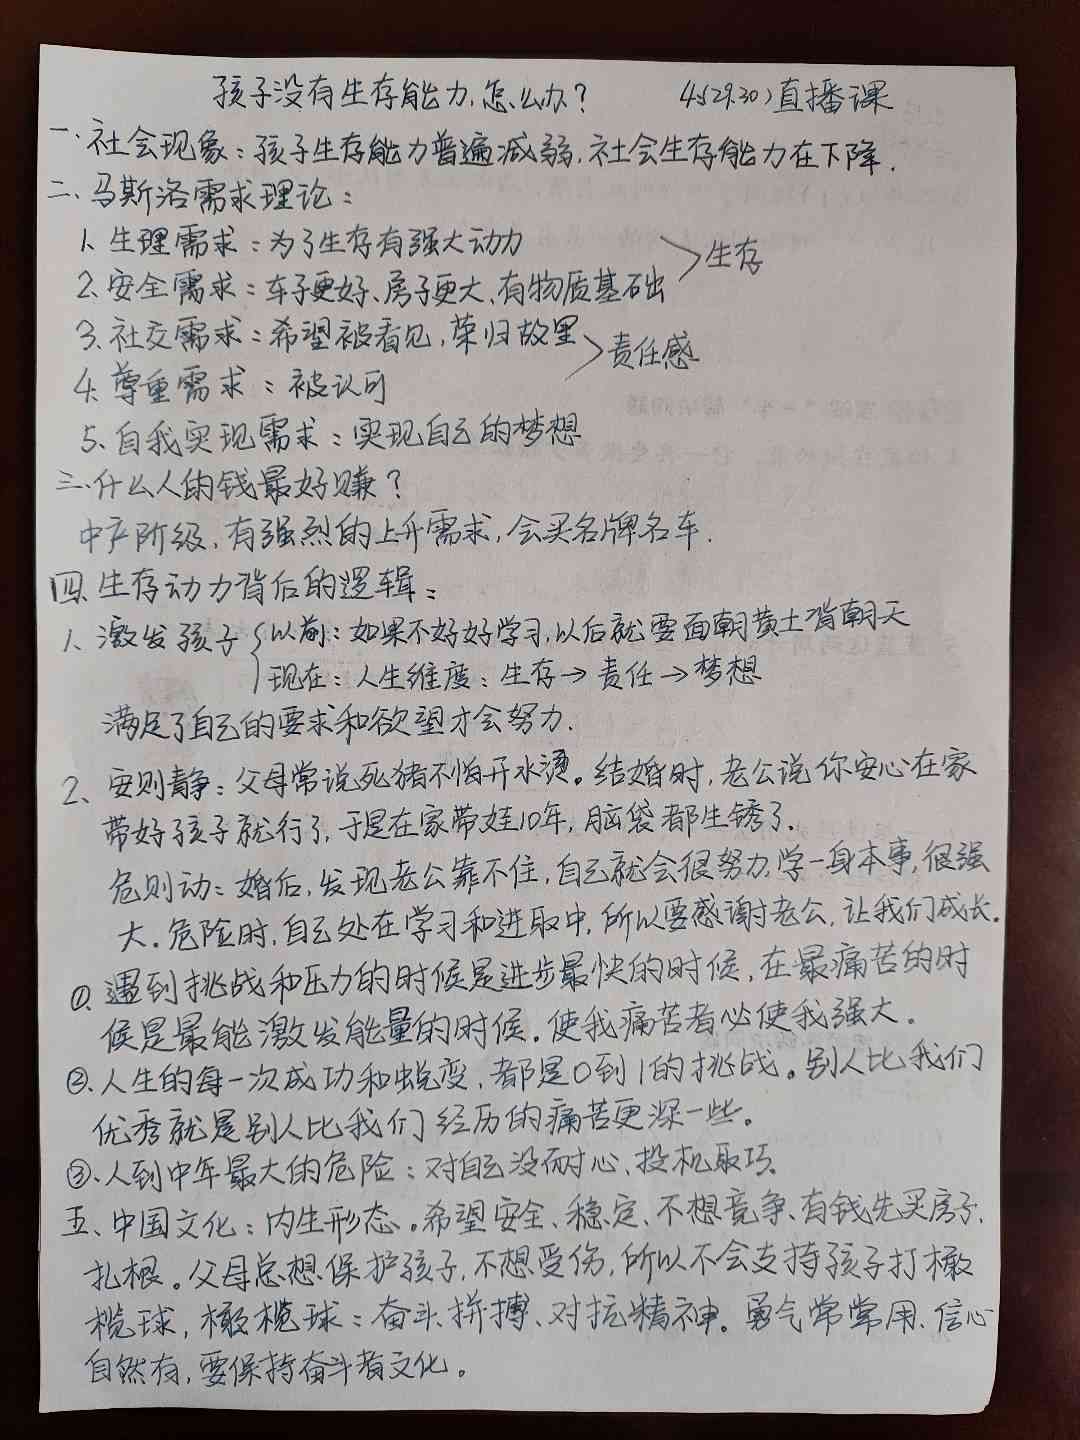 孩子没有生存能力,怎么办? 45(29.30)直播课
一、社会现象:孩子生存能力普遍减弱,社会生存能力在下降.
二、马斯洛需求理论:
1、生理需求:为了生存有强大动力
生存
2、安全需求:车子更好、房子更大、有物质基础
3、社交需求:希望被看见,荣归故里
责任感
4、尊重需求:被认可
5、自我实现需求:实现自己的梦想
三、什么人的钱最好赚?
中产阶级,有强烈的上升需求,会买名牌名车.
四、生存动力背后的逻辑:
1、激发孩子{以前:如果不好好学习,以后就要面朝黄土背朝天
现在:人生维度:生存→责任→梦想
满足了自己的要求和欲望才会努力.
2、安则静:父母常说死猪不怕开水烫。结婚时,老公说你安心在家
带好孩子就行了,于是在家带娃10年,脑袋都生锈了.
危则动:婚后,发现老公靠不住,自己就会很努力,学一身本事,很强
大.危险时,自己处在学习和进取中,所以要感谢老公,让我们成长.
①、遇到挑战和压力的时候是进步最快的时候,在最痛苦的时
候是最能激发能量的时候。使我痛苦者必使我强大。
②、人生的每一次成功和蜕变,都是0到1的挑战。别人比我们
优秀就是别人比我们经历的痛苦更深一些。
③、人到中年最大的危险:对自己没耐心、投机取巧.
五、中国文化:内生形态。希望安全、稳定、不想竞争、有钱先买房子、
扎根。父母总想保护孩子,不想受伤,所以不会支持孩子打橄
榄球,橄榄球:奋斗、拼搏、对抗精神。勇气常常用、信心
自然有,要保持奋斗者文化。